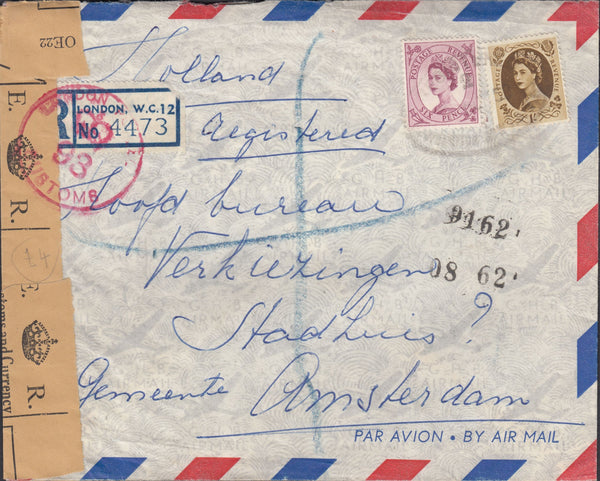 OE22
E. R.
E. R.
stoms and Currency
£4
R
LONDON, W.C.12
No 4473
LONDON
CUSTOMS
POSTAGE REVENUE
SIX PENCE
POSTAGE REVENUE
Holland
Registered
Hoofd bureau
Verkiezingen
Stadhuis?
Gemeente Amsterdam
9162.
98 62.
PAR AVION • BY AIR MAIL